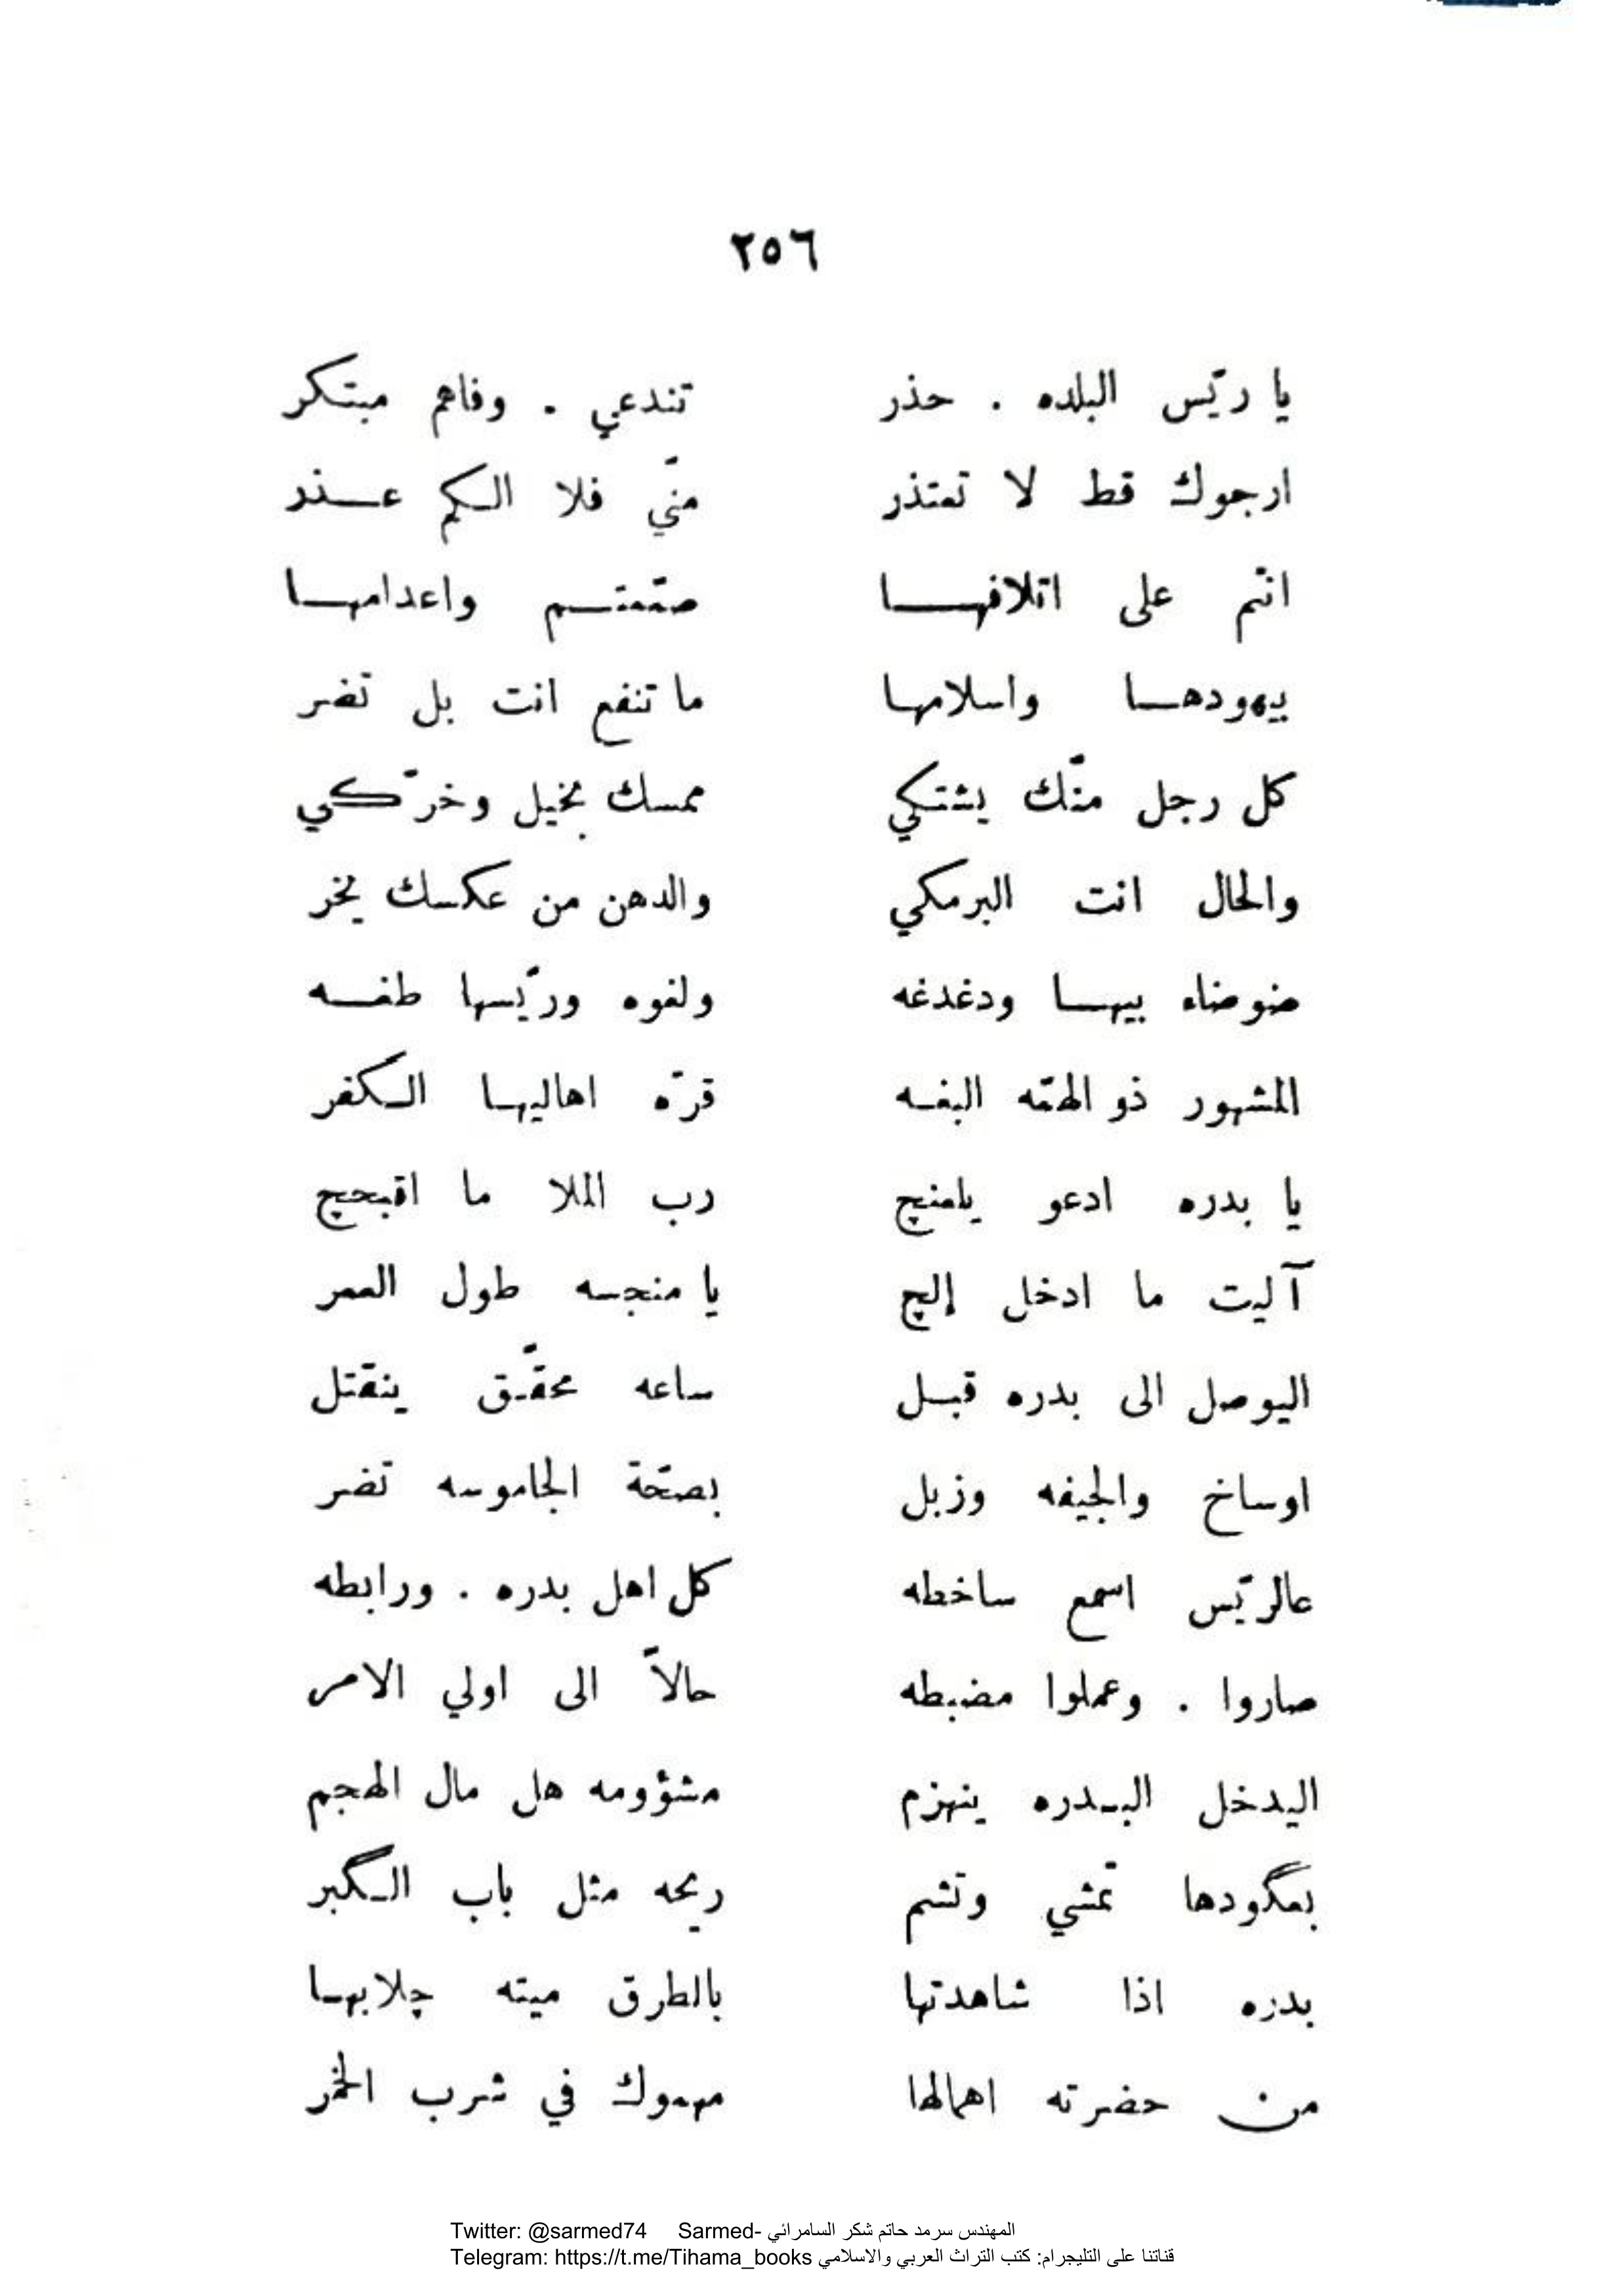 ٢٥٦
يا ريّس البلده . حذر تندعي . وفاهم مبتكر
ارجوك قط لا تعتذر منّي فلا الكم عذر
انتم على اتلافها صمّمتم واعدامها
يهودها واسلامها ما تنفع انت بل تضر
كل رجل منّك يشتكي ممسك بخيل وخرّكي
والحال انت البرمكي والدهن من عكسك يخر
ضوضاء بيها ودغدغه ولغوه وريّسها طغه
المشهور ذو الهمّه البغه قرّه اهاليها الكفر
يا بدره ادعو يامنج رب الملا ما اقبحچ
آليت ما ادخل إلچ يا منجسه طول العمر
اليوصل الى بدره قبل ساعه محقّق ينقتل
اوساخ والجيفه وزبل بصحّة الجاموسه تضر
عالريّس اسمع ساخطه كل اهل بدره . ورابطه
صاروا . وعملوا مضبطه حالاً الى اولي الامر
اليدخل البدره ينهزم مشؤومه هل مال الهجم
بعگودها تمّشي وتشم ريحه مثل باب الگبر
بدره اذا شاهدتها بالطرق ميته چلابها
من حضرته اهمالها مهموك في شرب الخمر
Twitter: @sarmed74 Sarmed- المهندس سرمد حاتم شكر السامرائي
Telegram: https://t.me/Tihama_books قناتنا على التليجرام: كتب التراث العربي والاسلامي